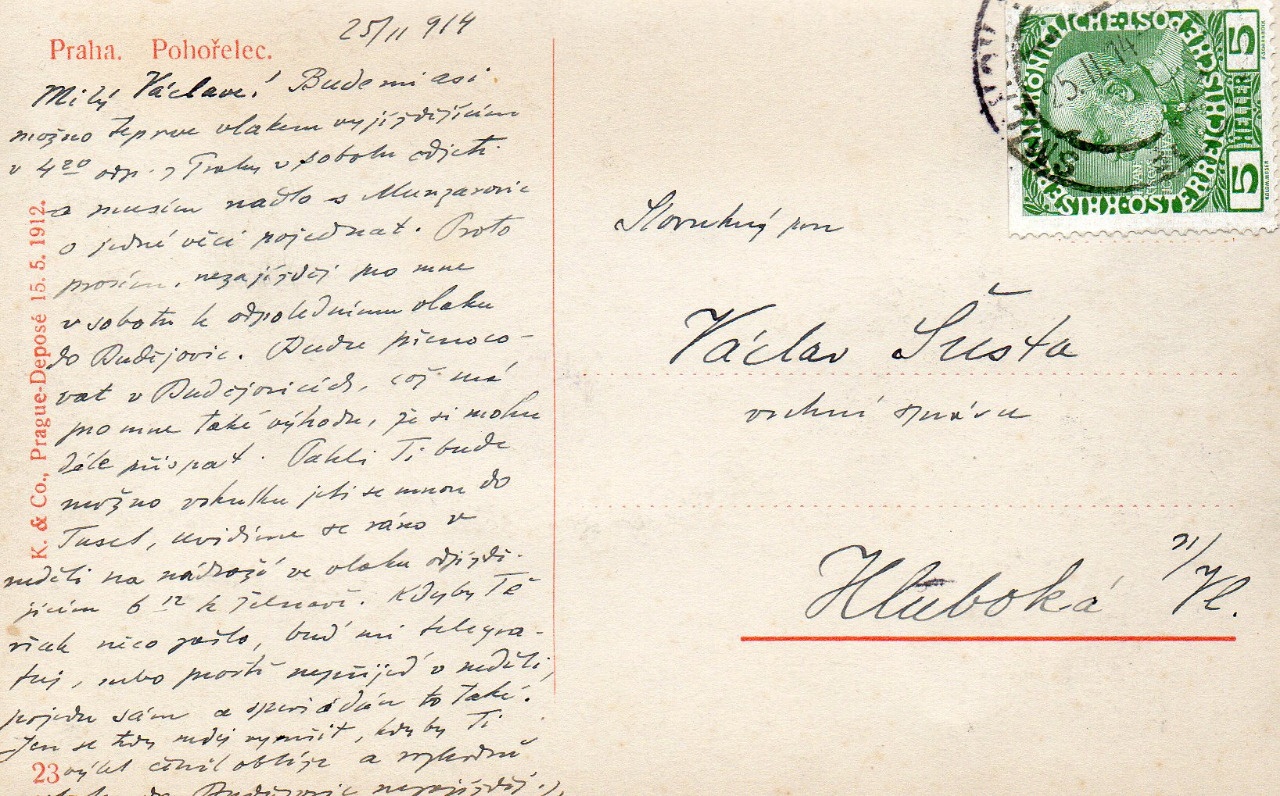 25/II 914
Praha. Pohořelec.
Milý Václave! Bude mi asi
možno teprve vlakem vyjíždějícím
v 4 20 odp. z Prahy v sobotu odjeti
a musím nadto s
o jedné věci pojednat. Proto
prosím, nezajížděj pro mne
v sobotu k odpolednímu vlaku
do Budějovic. Budu přenoco-
vat v Budějovicích, což má
pro mne také výhodu, že si mohu
déle přispat. Pakli Ti bude
možno vskutku jeti se mnou do
Tuset, uvidíme se ráno v
neděli na nádraží ve vlaku odjíždě-
jícím 6 12 k Želnavě. Kdyby Tě
však něco zašlo, buď mi telegra-
fuj, nebo prostě nepřijeď v neděli,
pojedu sám a to také.
Jen se tedy nedej vyrušit, kdyby Ti
výlet činil obtíže a
do Budějovic nezajížděj.
K. & Co., Prague-Deposé 15. 5. 1912.
23
Slovutný pan
Václav Šusta
vrchní správce
Hluboká n/Vl.
KAISERL·KÖNIGLICHE·ÖSTERREICHISCHE·POST
5 HELLER 5
25.III.14
SMÍCHOV